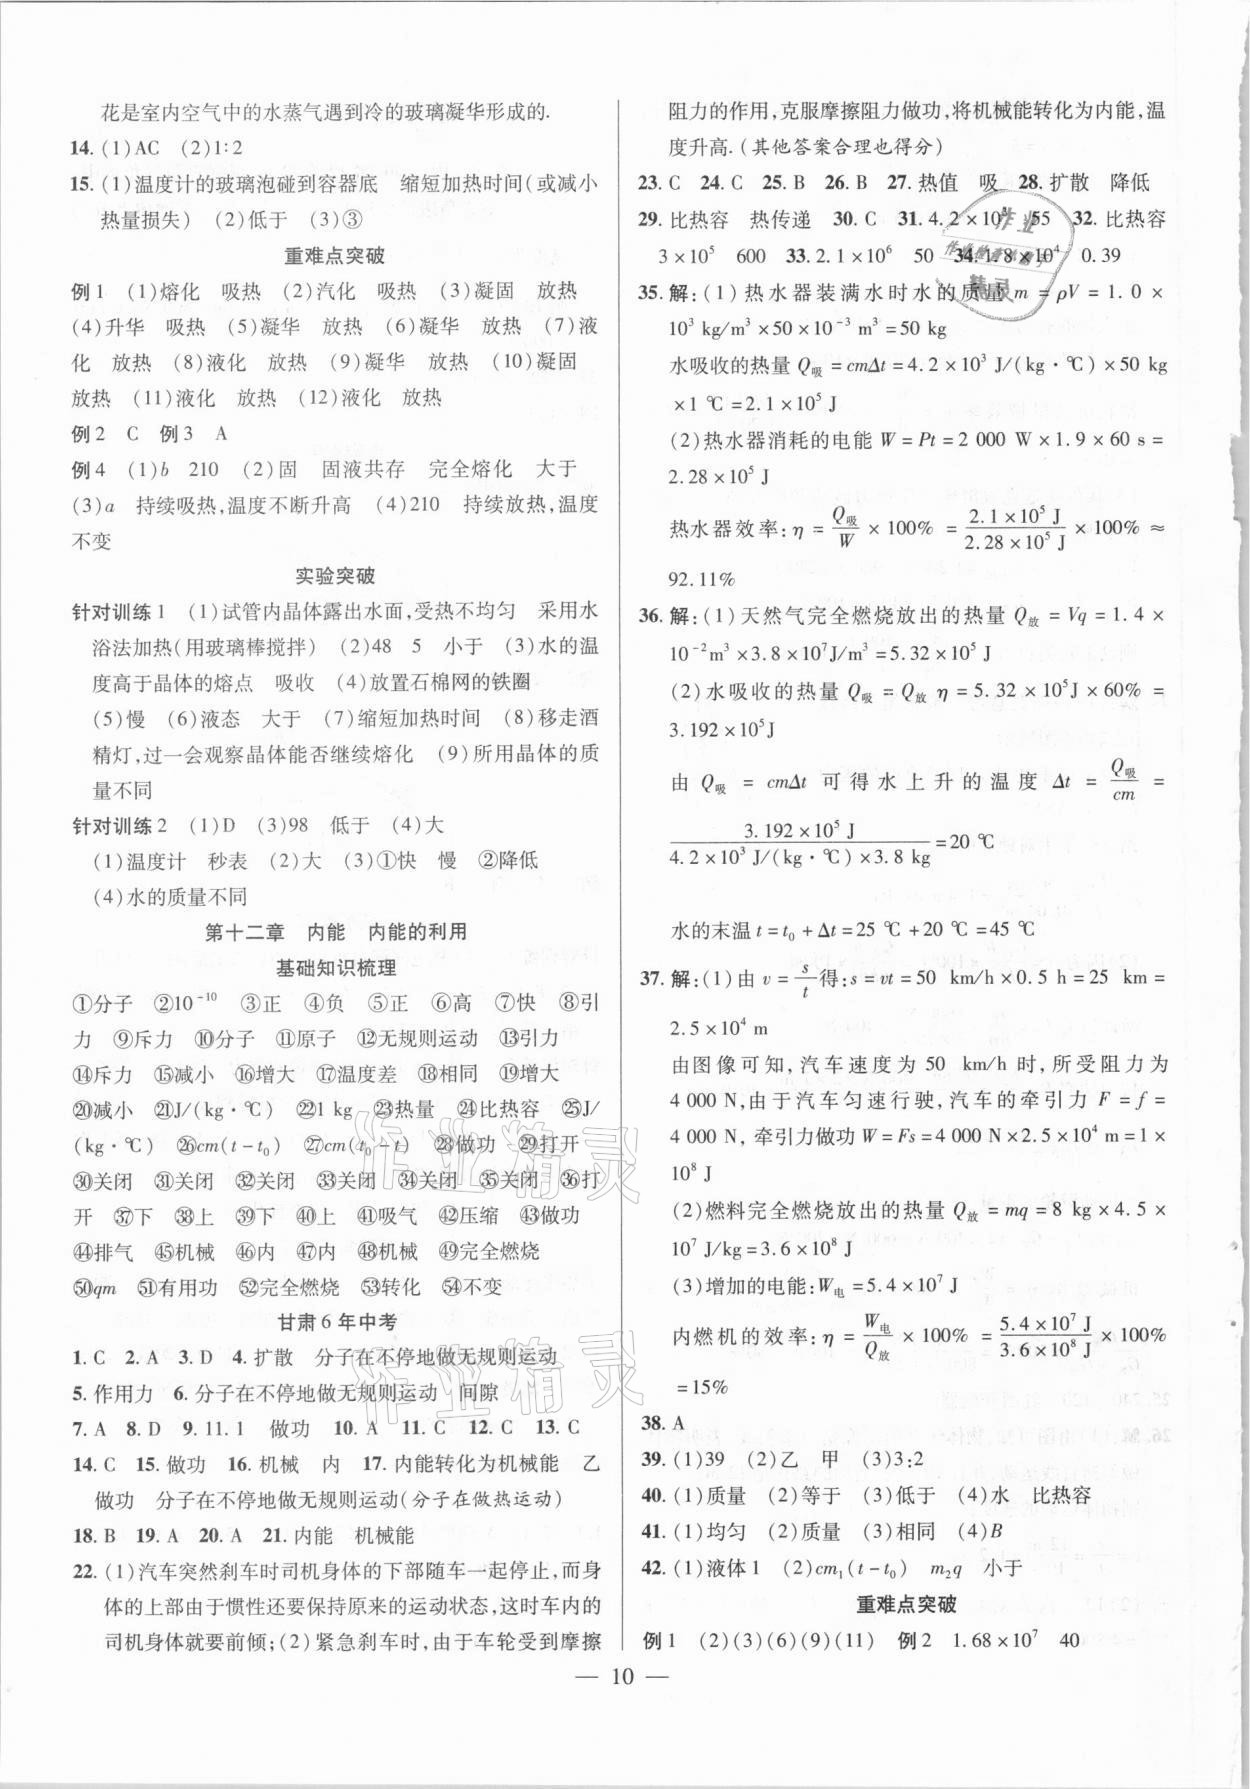 花是室内空气中的水蒸气遇到冷的玻璃凝华形成的.
14. (1)AC (2)1∶2
15. (1)温度计的玻璃泡碰到容器底 缩短加热时间(或减小
热量损失) (2)低于 (3)③
重难点突破
例1 (1)熔化 吸热 (2)汽化 吸热 (3)凝固 放热
(4)升华 吸热 (5)凝华 放热 (6)凝华 放热 (7)液
化 放热 (8)液化 放热 (9)凝华 放热 (10)凝固
放热 (11)液化 放热 (12)液化 放热
例2 C 例3 A
例4 (1)b 210 (2)固 固液共存 完全熔化 大于
(3)a 持续吸热,温度不断升高 (4)210 持续放热,温度
不变
实验突破
针对训练1 (1)试管内晶体露出水面,受热不均匀 采用水
浴法加热(用玻璃棒搅拌) (2)48 5 小于 (3)水的温
度高于晶体的熔点 吸收 (4)放置石棉网的铁圈
(5)慢 (6)液态 大于 (7)缩短加热时间 (8)移走酒
精灯,过一会观察晶体能否继续熔化 (9)所用晶体的质
量不同
针对训练2 (1)D (3)98 低于 (4)大
(1)温度计 秒表 (2)大 (3)①快 慢 ②降低
(4)水的质量不同
第十二章 内能 内能的利用
基础知识梳理
①分子 ②10⁻¹⁰ ③正 ④负 ⑤正 ⑥高 ⑦快 ⑧引
力 ⑨斥力 ⑩分子 ⑪原子 ⑫无规则运动 ⑬引力
⑭斥力 ⑮减小 ⑯增大 ⑰温度差 ⑱相同 ⑲增大
⑳减小 ㉑J/(kg·℃) ㉒1 kg ㉓热量 ㉔比热容 ㉕J/
(kg·℃) ㉖cm(t-t₀) ㉗cm(t₀-t) ㉘做功 ㉙打开
㉚关闭 ㉛关闭 ㉜关闭 ㉝关闭 ㉞关闭 ㉟关闭 ㊱打
开 ㊲下 ㊳上 ㊴上 ㊵上 ㊶吸气 ㊷压缩 ㊸做功
㊹排气 ㊺机械 ㊻内 ㊼内 ㊽机械 ㊾完全燃烧
㊿qm 51有用功 52完全燃烧 53转化 54不变
甘肃6年中考
1. C 2. A 3. D 4. 扩散 分子在不停地做无规则运动
5. 作用力 6. 分子在不停地做无规则运动 间隙
7. A 8. D 9. 11.1 做功 10. A 11. C 12. C 13. C
14. C 15. 做功 16. 机械 内 17. 内能转化为机械能 乙
做功 分子在不停地做无规则运动(分子在做热运动)
18. B 19. A 20. A 21. 内能 机械能
22. (1)汽车突然刹车时司机身体的下部随车一起停止,而身
体的上部由于惯性还要保持原来的运动状态,这时车内的
司机身体就要前倾;(2)紧急刹车时,由于车轮受到摩擦
阻力的作用,克服摩擦阻力做功,将机械能转化为内能,温
度升高.(其他答案合理也得分)
23. C 24. C 25. B 26. B 27. 热值 吸 28. 扩散 降低
29. 比热容 热传递 30. C 31. 4.2×10⁵ 55 32. 比热容
3×10⁵ 600 33. 2.1×10⁶ 50 34. 1.8×10⁴ 0.39
35. 解:(1)热水器装满水时水的质量 m=ρV=1.0×
10³ kg/m³×50×10⁻³ m³=50 kg
水吸收的热量 Q吸=cmΔt=4.2×10³ J/(kg·℃)×50 kg
×1 ℃=2.1×10⁵ J
(2)热水器消耗的电能 W=Pt=2 000 W×1.9×60 s=
2.28×10⁵ J
热水器效率:η=Q吸/W×100%=2.1×10⁵ J/2.28×10⁵ J×100%≈
92.11%
36. 解:(1)天然气完全燃烧放出的热量 Q放=Vq=1.4×
10⁻²m³×3.8×10⁷J/m³=5.32×10⁵ J
(2)水吸收的热量 Q吸=Q放 η=5.32×10⁵J×60%=
3.192×10⁵J
由 Q吸=cmΔt 可得水上升的温度 Δt=Q吸/cm=
3.192×10⁵ J/4.2×10³ J/(kg·℃)×3.8 kg=20 ℃
水的末温 t=t₀+Δt=25 ℃+20 ℃=45 ℃
37. 解:(1)由 v=s/t得:s=vt=50 km/h×0.5 h=25 km=
2.5×10⁴ m
由图像可知,汽车速度为 50 km/h 时,所受阻力为
4 000 N,由于汽车匀速行驶,汽车的牵引力 F=f=
4 000 N,牵引力做功 W=Fs=4 000 N×2.5×10⁴ m=1×
10⁸ J
(2)燃料完全燃烧放出的热量 Q放=mq=8 kg×4.5×
10⁷ J/kg=3.6×10⁸ J
(3)增加的电能:W电=5.4×10⁷ J
内燃机的效率:η=W电/Q放×100%=5.4×10⁷ J/3.6×10⁸ J×100%
=15%
38. A
39. (1)39 (2)乙 甲 (3)3∶2
40. (1)质量 (2)等于 (3)低于 (4)水 比热容
41. (1)均匀 (2)质量 (3)相同 (4)B
42. (1)液体1 (2)cm₁(t-t₀) m₂q 小于
重难点突破
例1 (2)(3)(6)(9)(11) 例2 1.68×10⁷ 40
— 10 —
作业精灵
作业精灵